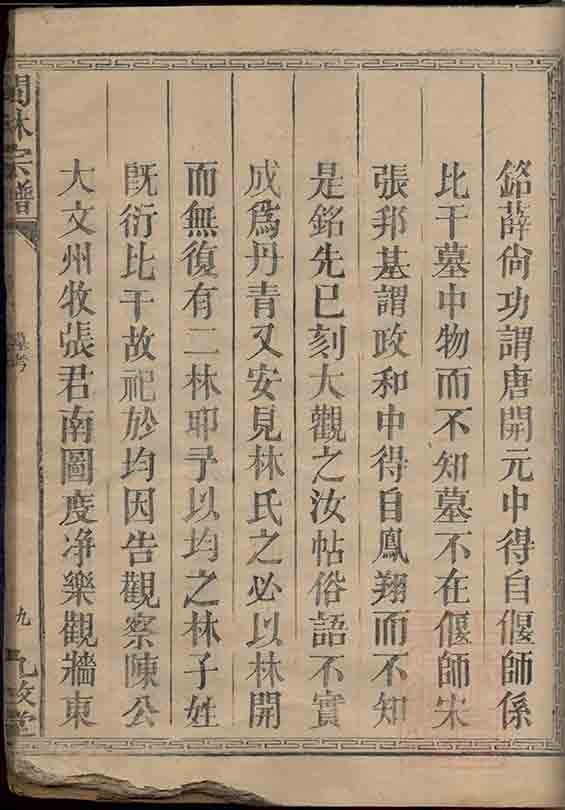 銘薛尙功謂唐開元中得自偃師係
比干墓中物而不知墓不在偃師宋
張邦基謂政和中得自鳳翔而不知
是銘先已刻大觀之汝帖俗語不實
成爲丹青又安見林氏之必以林開
而無復有二林耶予以均之林子姓
旣衍比干故祀於均因告觀察陳公
大文州牧張君南圖度淨樂觀牆東
林宗譜
墓考
九